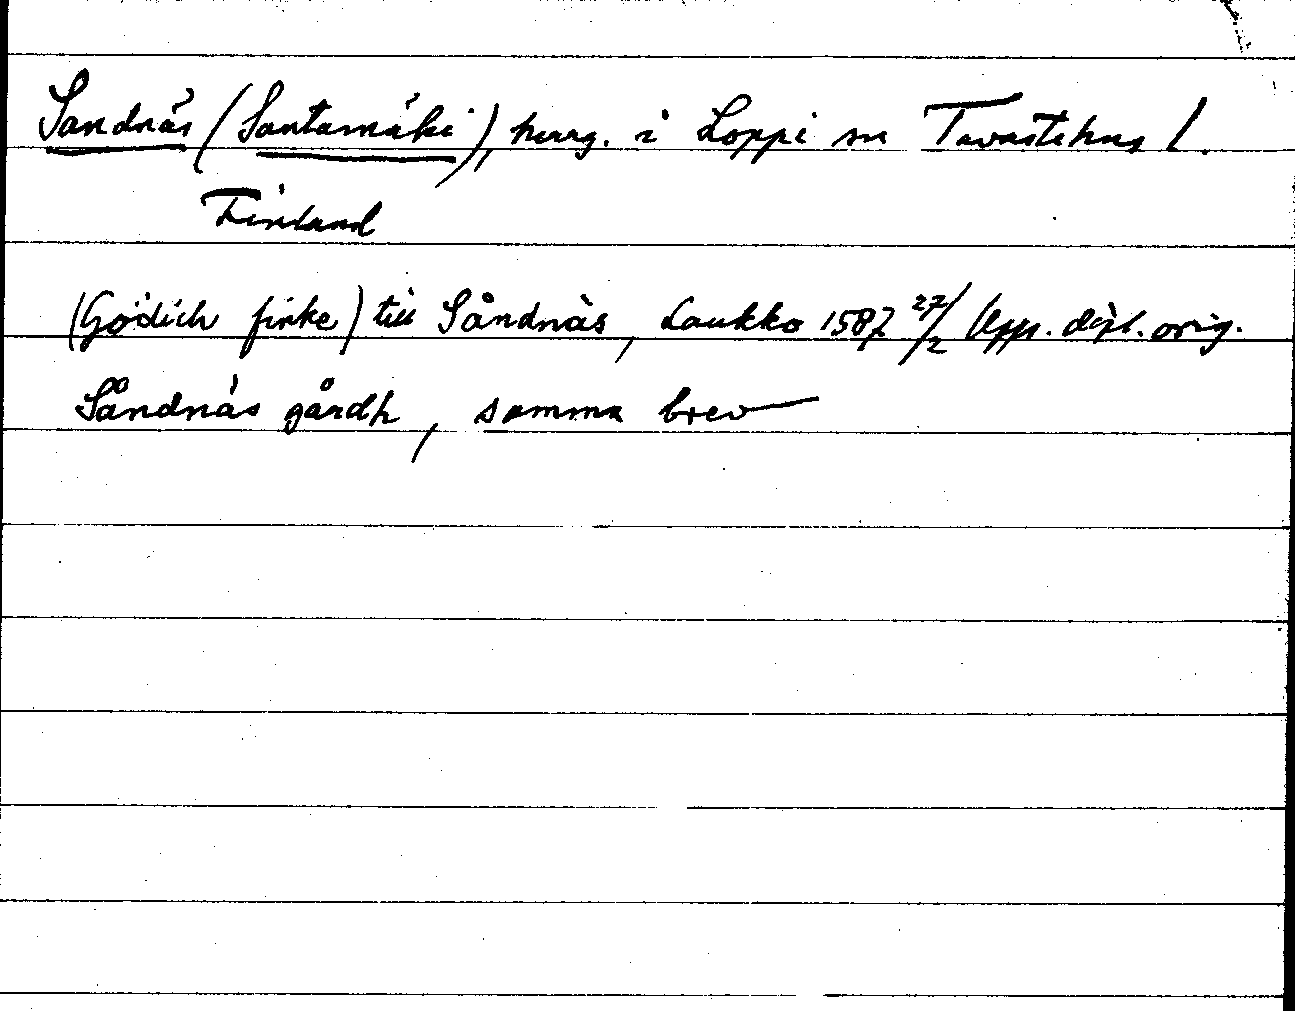 Sandnäs (Santamäki), herrg. i Loppi sn Tavastehus l.
Finland
(Gödich finke) till Såndnäs, Laukko 1587 27/2 Upps. dipl. orig.
Såndnäs gårdh, samma brev